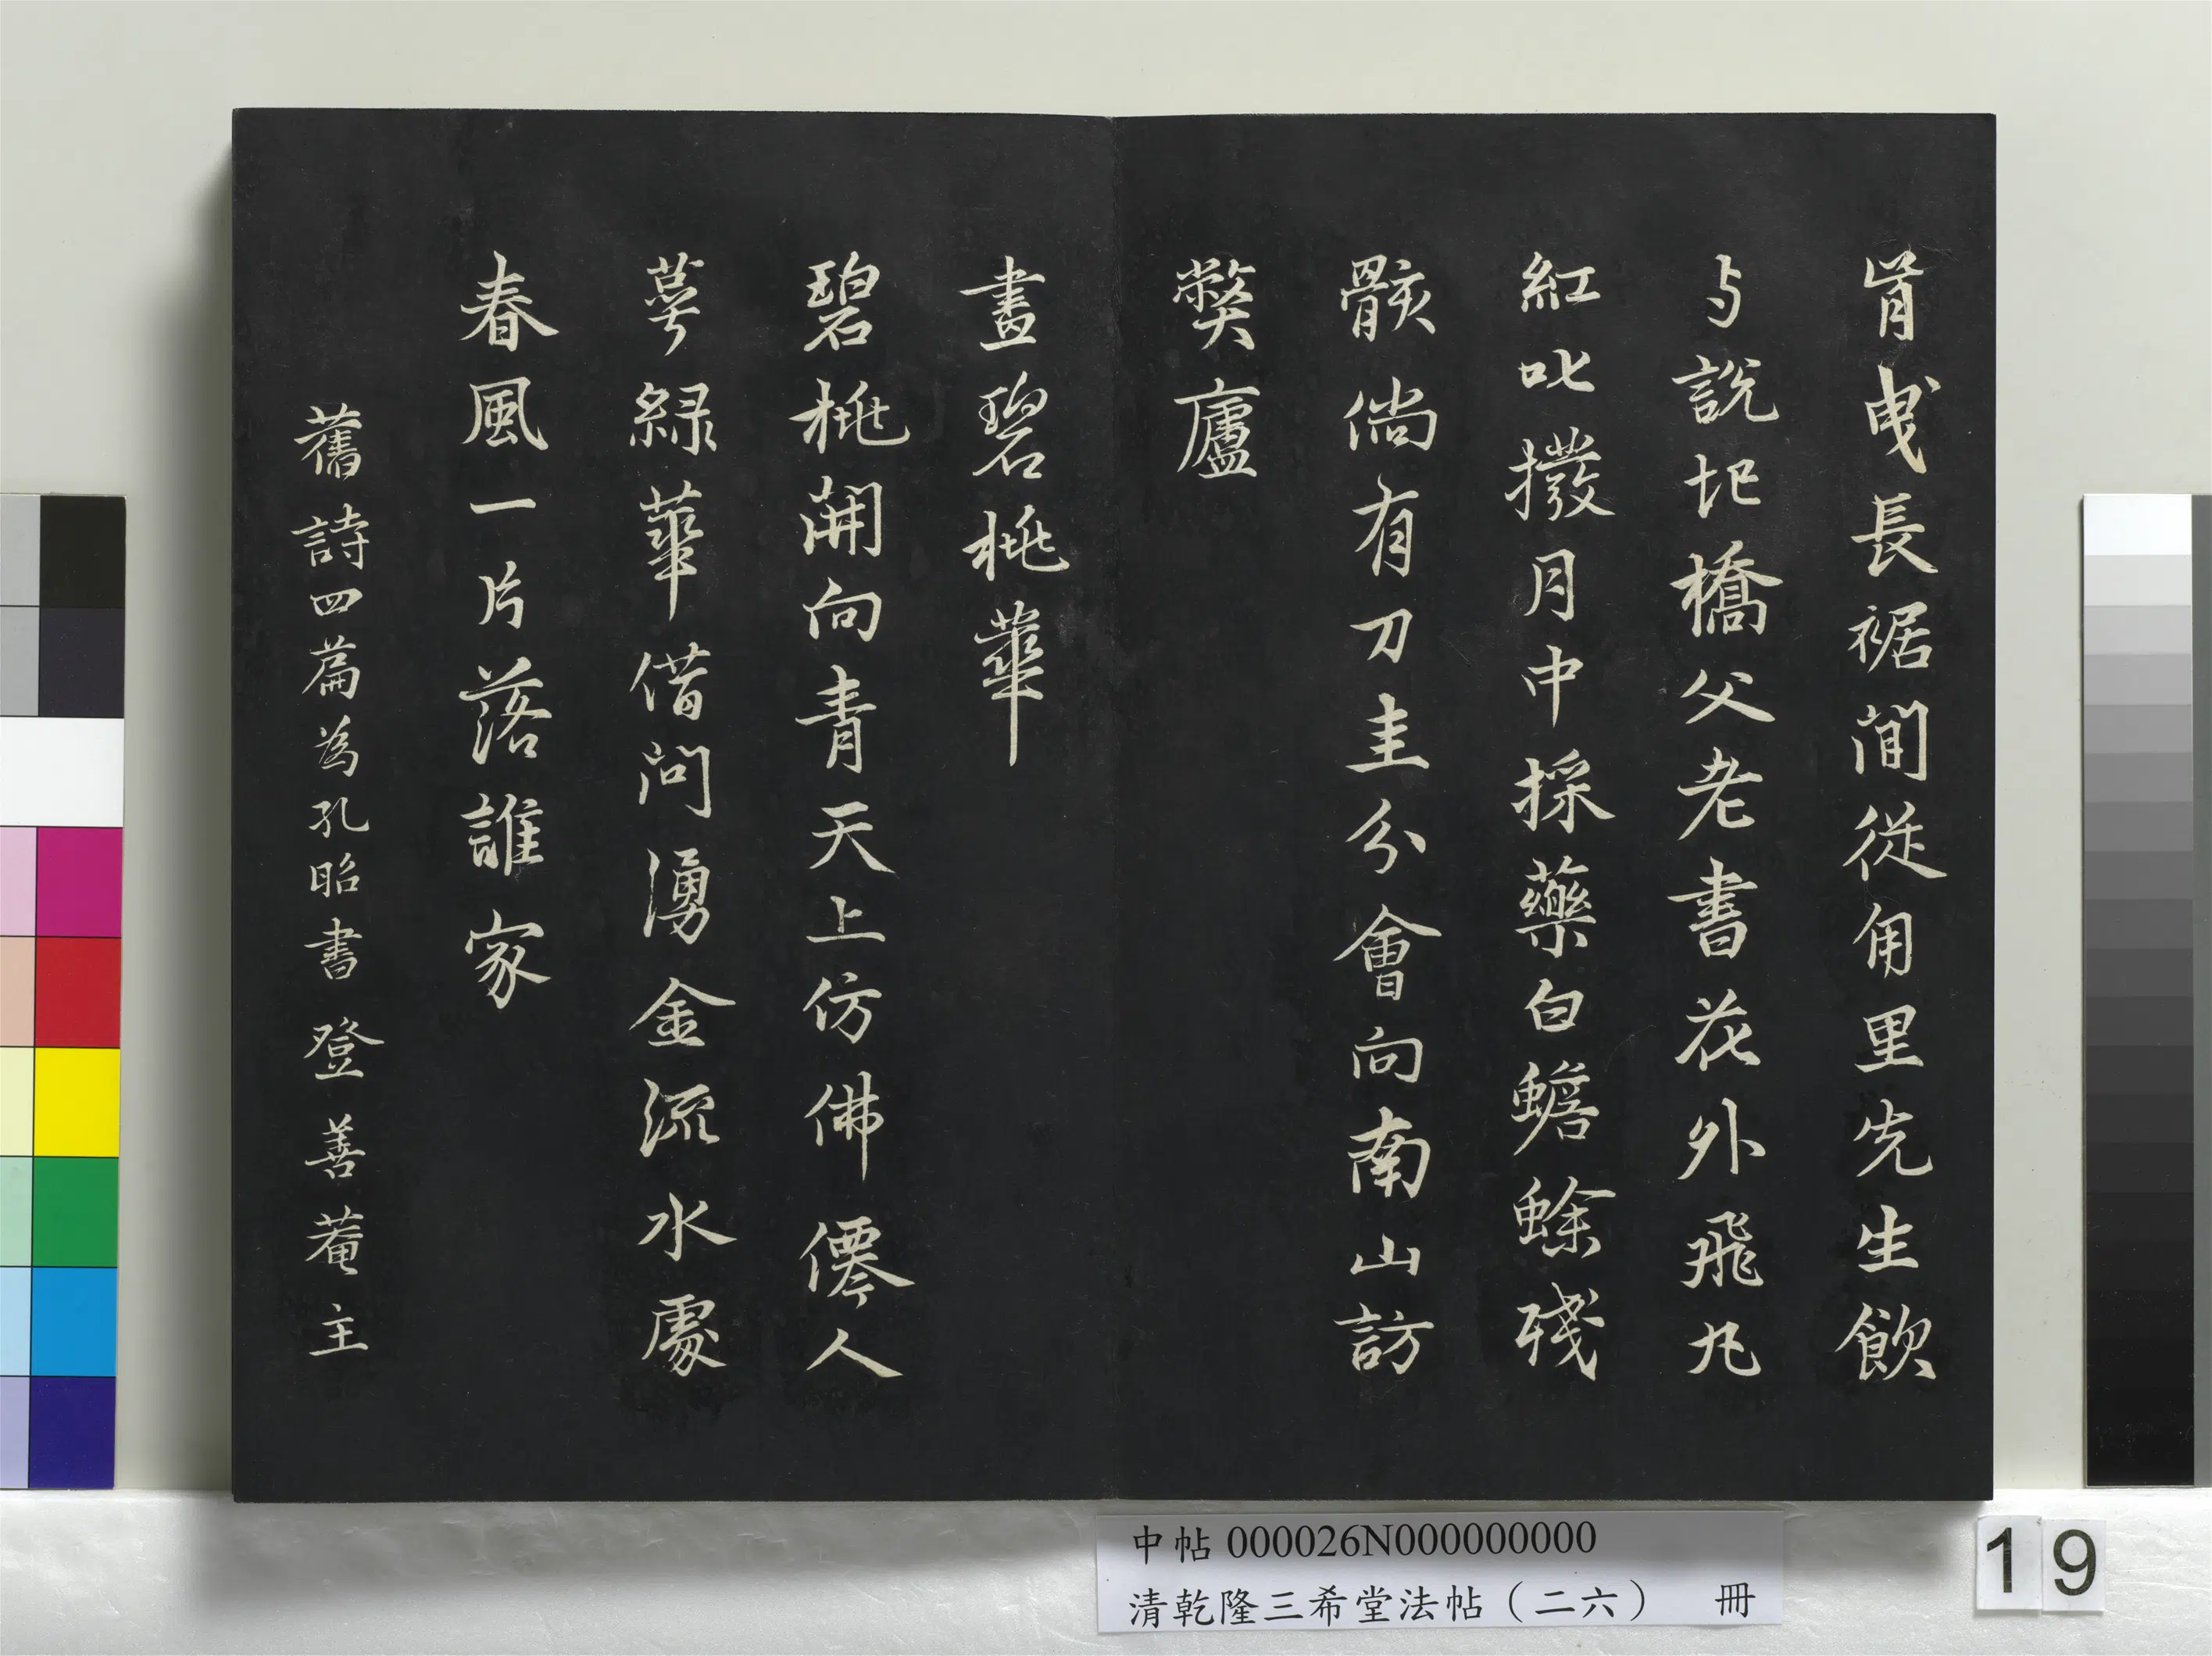 肯曳長裾間從甪里先生飲
与說圯橋父老書花外飛丸
紅叱撥月中採藥白蟾蜍殘
骸倘有刀圭分會向南山訪
弊廬
畫碧桃華
碧桃開向青天上仿佛僊人
萼緑華借問湧金流水處
春風一片落誰家
舊詩四篇為孔昭書 登善菴主
中帖 000026N000000000
清乾隆三希堂法帖（二六） 冊
19